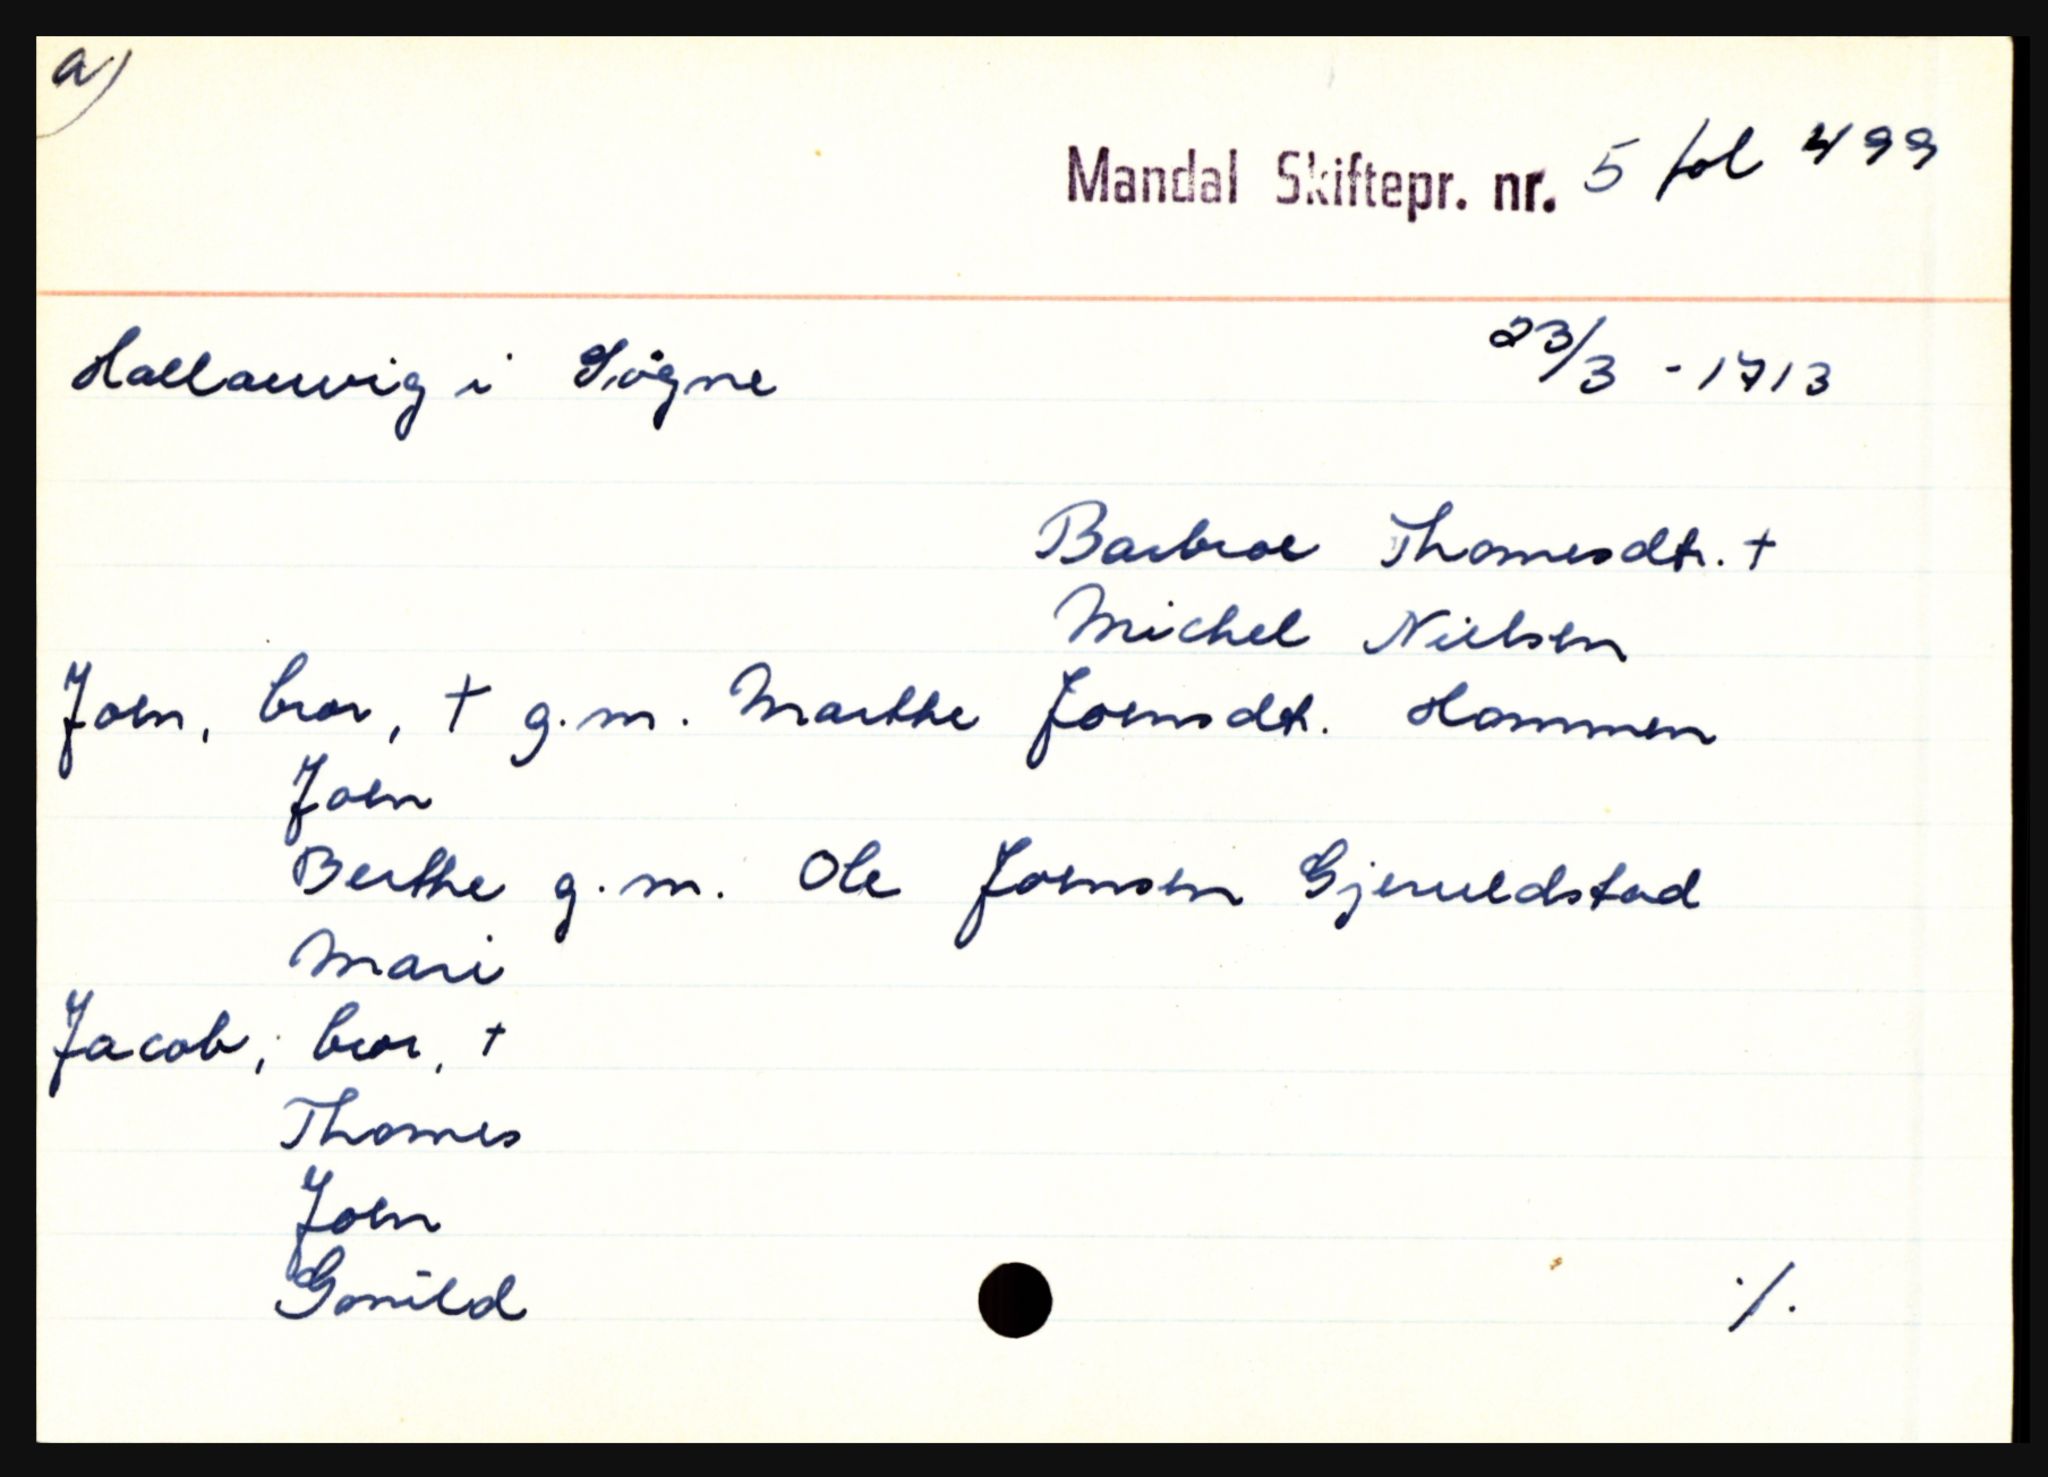 a)
Mandal Skiftepr. nr. 5 fol 499
Hallanvig i Søgne 23/3 - 1713
Barbroe Thomesdtr. †
Michel Nielsen
Joen, bror, † g.m. Marthe Joensdtr. Hommen
Joen
Berthe g.m. Ole Joensen Gjeruldstad
Mari
Jacob, bror, †
Thomes
Joen
Gonild
./.